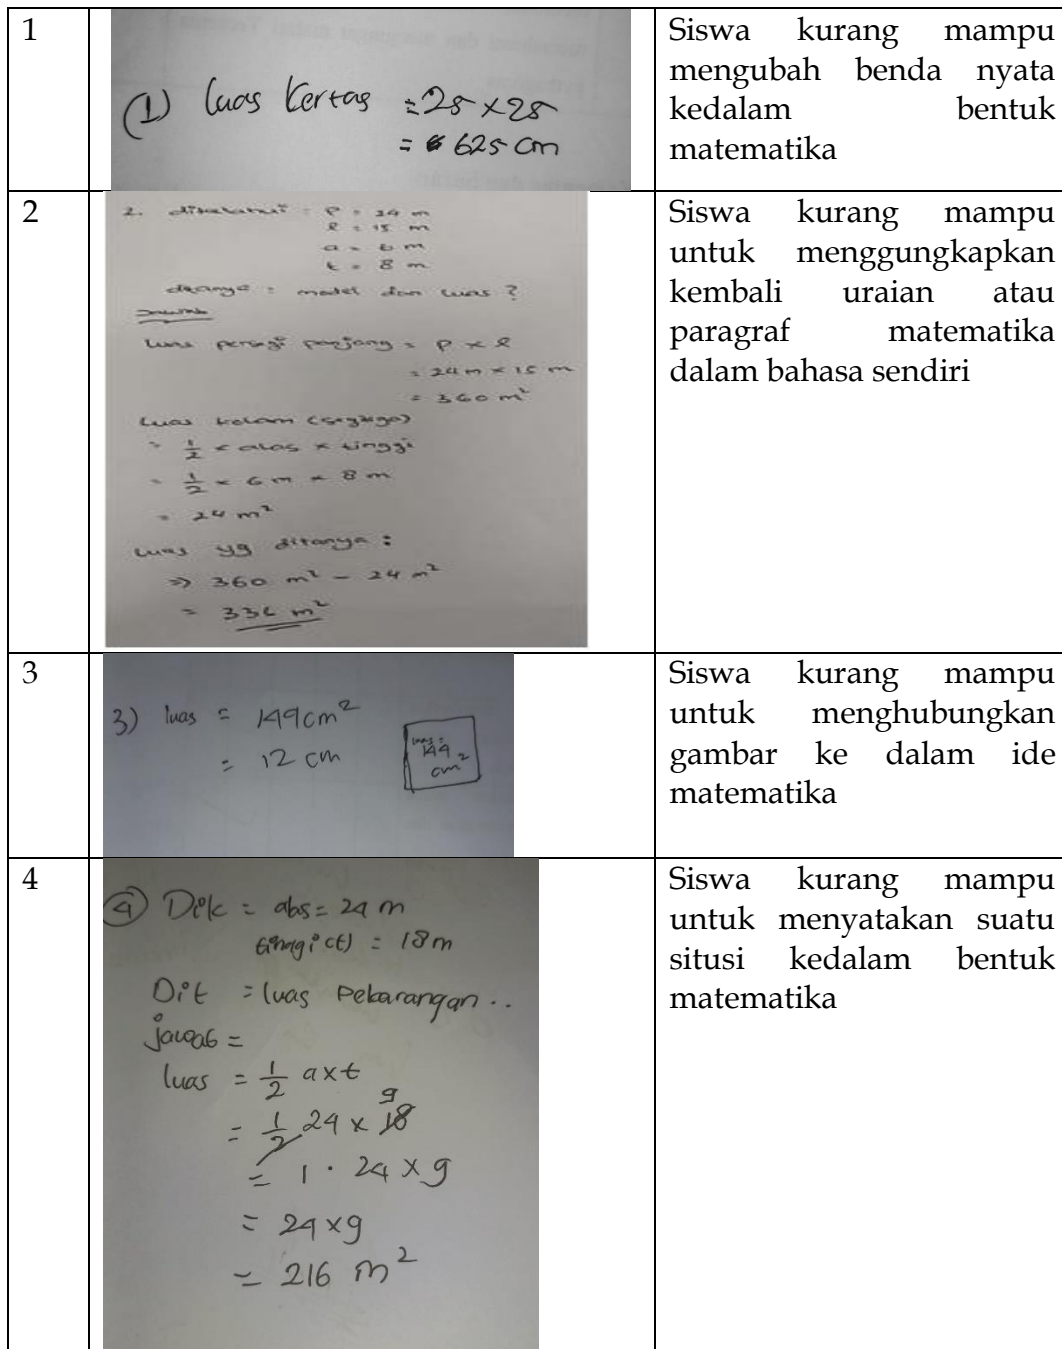 1
(1) luas kertas = 25 × 25
= 625 cm
Siswa kurang mampu
mengubah benda nyata
kedalam bentuk
matematika
2
2. diketahui : P = 24 m
l = 15 m
a = 6 m
t = 8 m
ditanya : model dan luas ?
Jawab
Luas persegi panjang = P × l
= 24 m × 15 m
= 360 m²
Luas kolam (segitiga)
= 1/2 × alas × tinggi
= 1/2 × 6 m × 8 m
= 24 m²
Luas yg ditanya :
⇒ 360 m² - 24 m²
= 336 m²
Siswa kurang mampu
untuk menggungkapkan
kembali uraian atau
paragraf matematika
dalam bahasa sendiri
3
3) luas = 144 cm²
= 12 cm
luas =
144
cm²
Siswa kurang mampu
untuk menghubungkan
gambar ke dalam ide
matematika
4
(4) Dik = alas = 24 m
tinggi (t) = 18 m
Dit = luas Pekarangan ..
jawab =
luas = 1/2 a x t
9
= 1/2 24 x 18
= 1 . 24 x 9
= 24 x 9
= 216 m²
Siswa kurang mampu
untuk menyatakan suatu
situsi kedalam bentuk
matematika